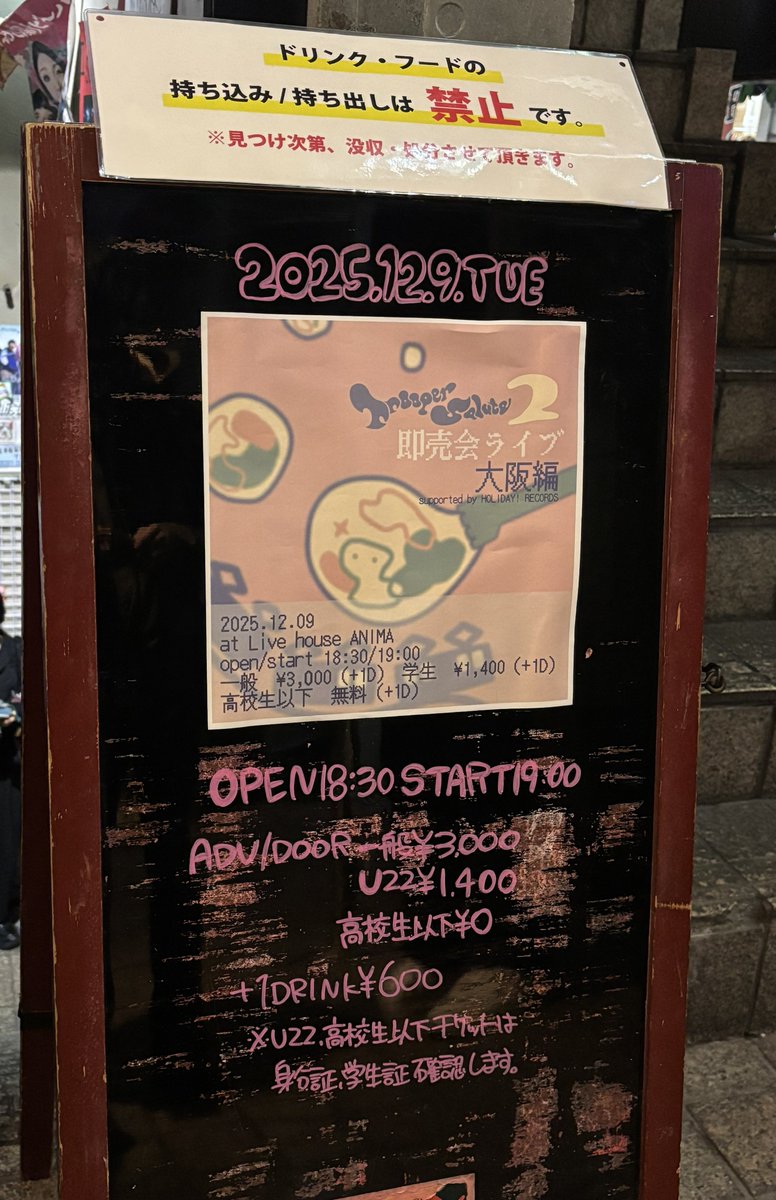 ドリンク・フードの
持ち込み/持ち出しは 禁止 です。
※見つけ次第、没収・処分させて頂きます。
2025.12.9.TUE
Trooper Salute 2
即売会ライブ
大阪編
supported by HOLIDAY! RECORDS
2025.12.09
at Live house ANIMA
open/start 18:30/19:00
一般 ¥3,000 (+1D) 学生 ¥1,400 (+1D)
高校生以下 無料 (+1D)
OPEN18:30 START19:00
ADV/DOOR 一般¥3,000
U22¥1,400
高校生以下¥0
+1DRINK¥600
※U22.高校生以下チケットは
身分証、学生証確認します。